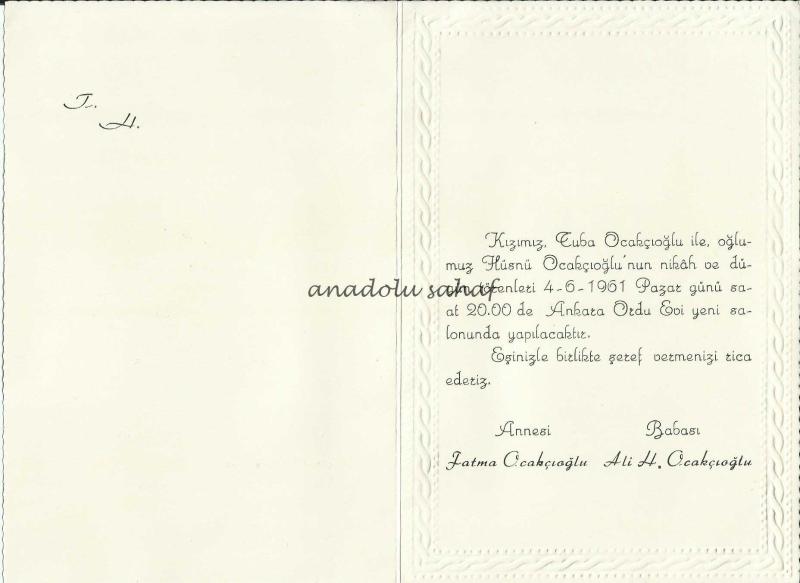 T.
H.
Kızımız, Tuba Ocakçıoğlu ile, oğlu-
muz Hüsnü Ocakçıoğlu'nun nikâh ve dü-
ğün törenleri 4-6-1961 Pazar günü sa-
at 20.00 de Ankara Ordu Evi yeni sa-
lonunda yapılacaktır.
Eşinizle birlikte şeref vermenizi rica
ederiz.
Annesi Babası
Fatma Ocakçıoğlu Ali H. Ocakçıoğlu
anadolu sahaf